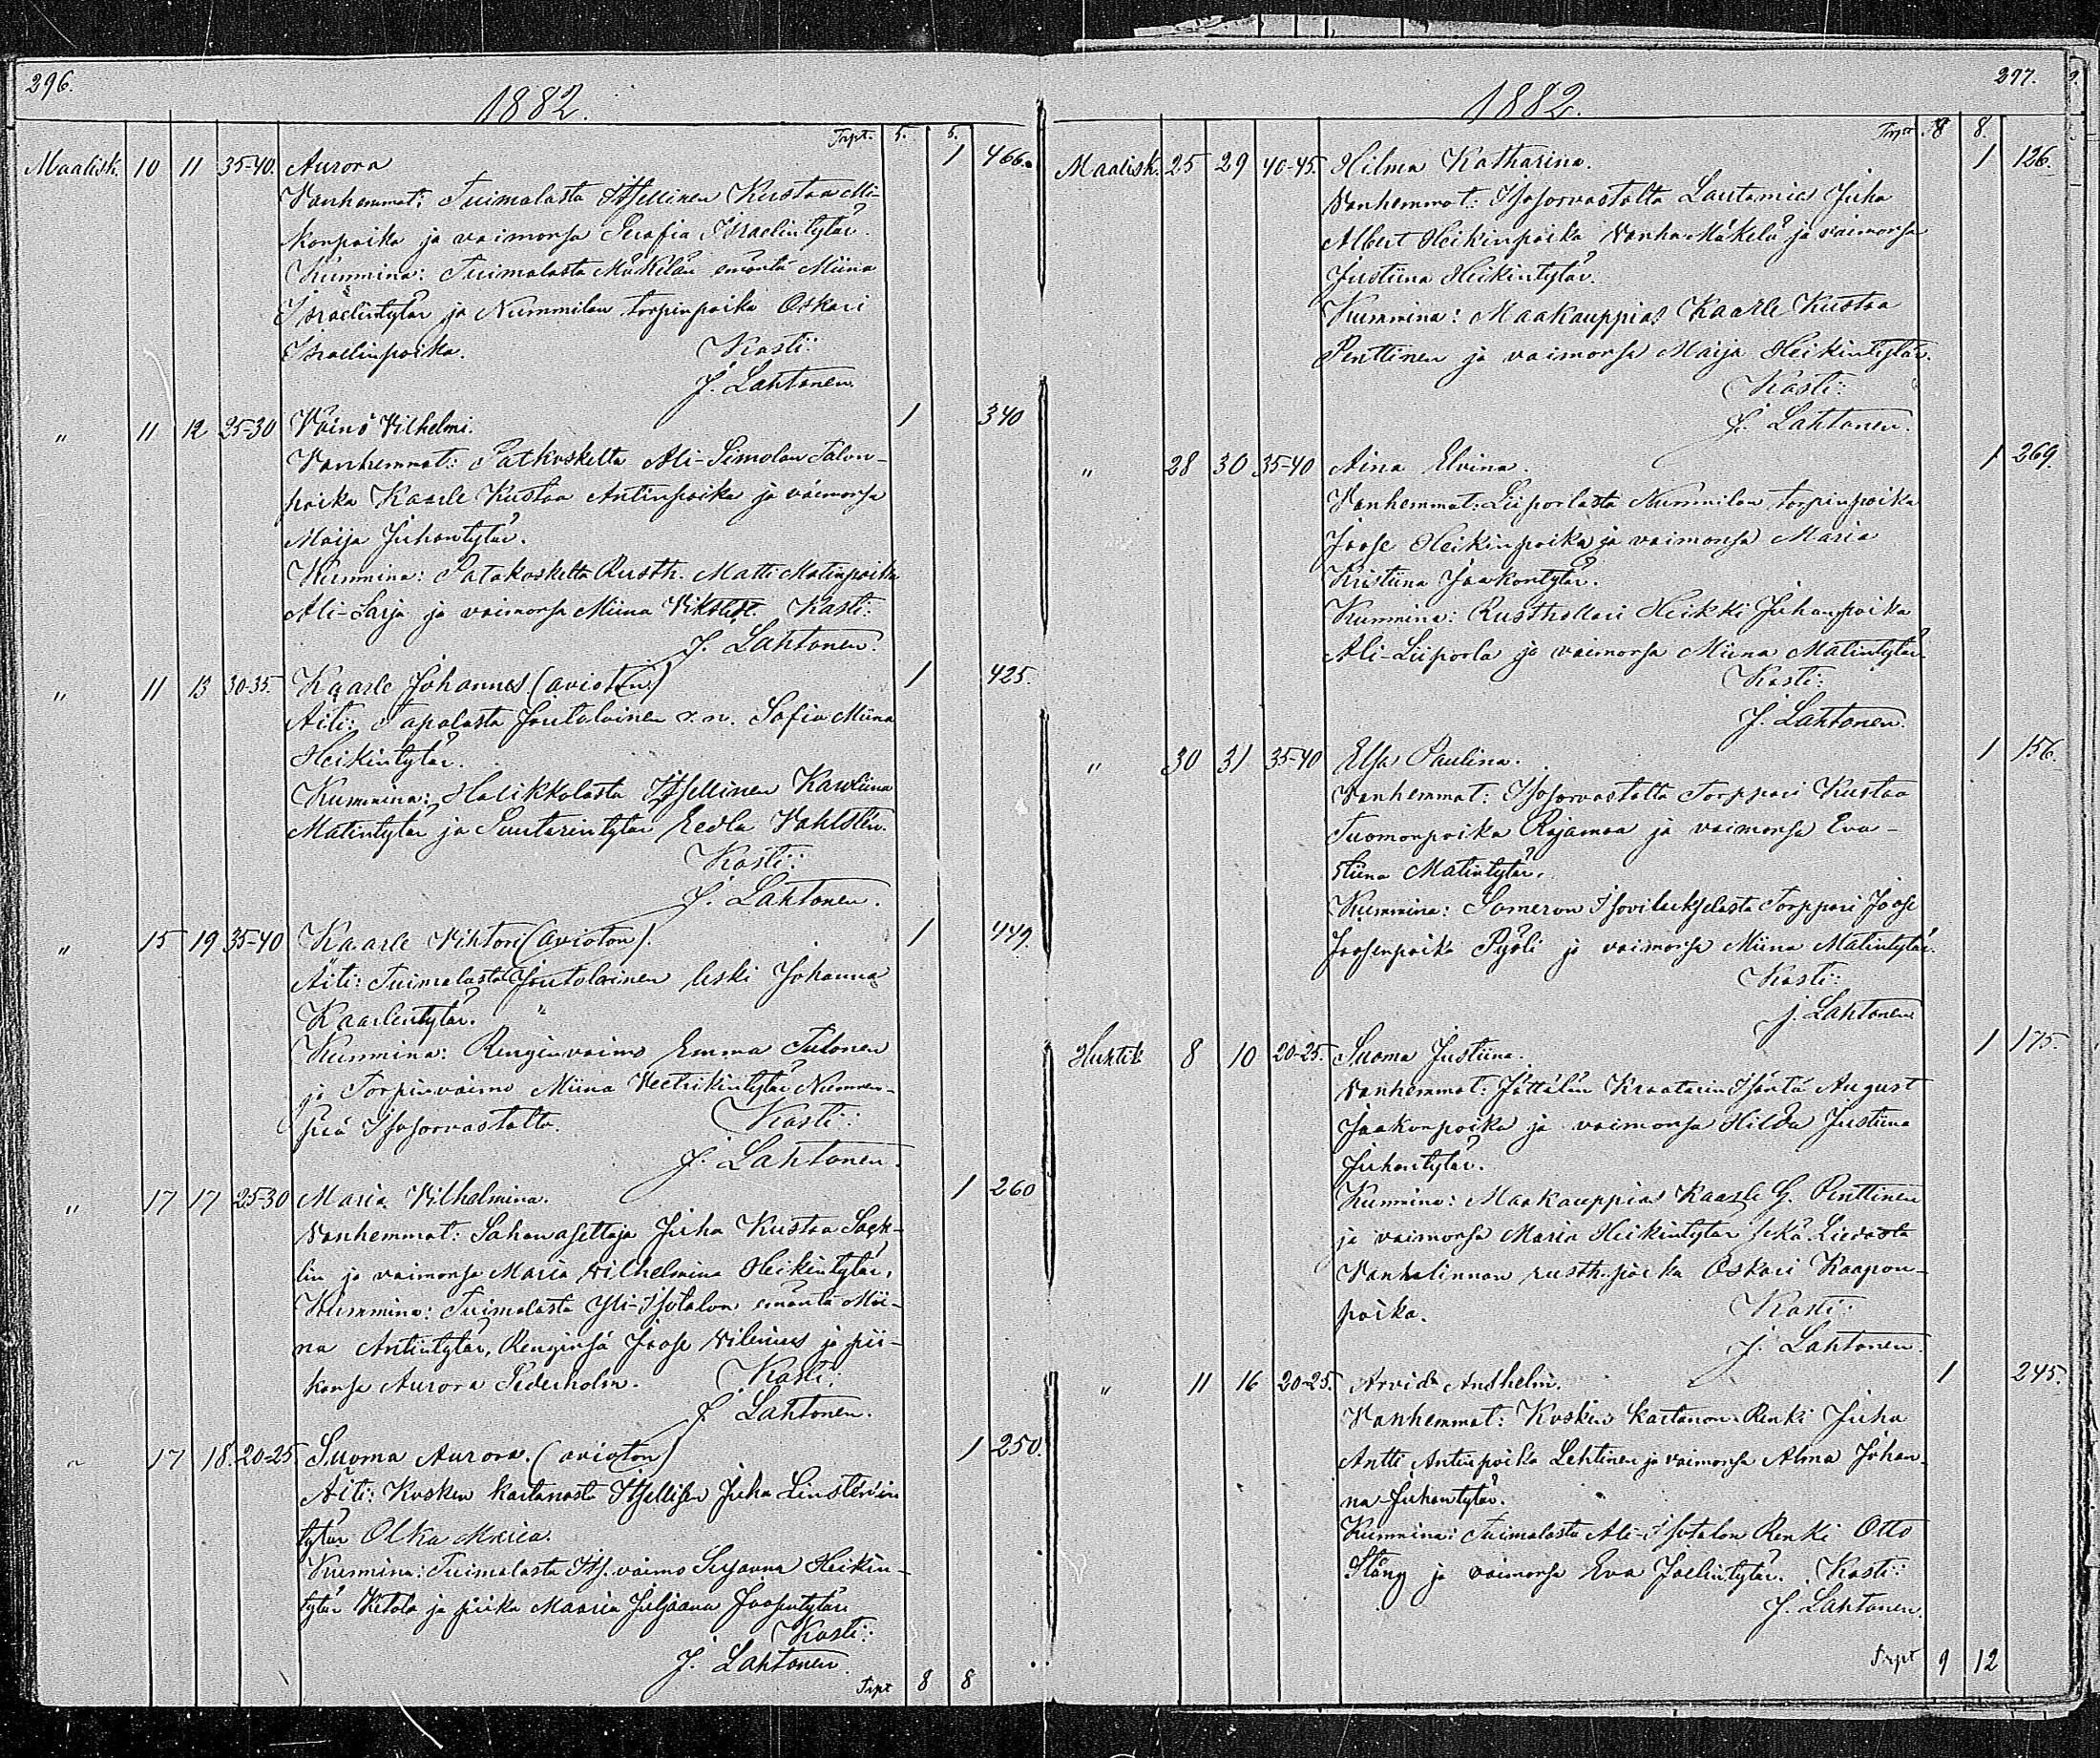 296.
1882.
Trpt. 5. 5.
Maalisk. 10 11 35-40. Aurora 1 466.
Vanhemmat: Tuimalasta Itsellinen Kustaa Mi-
konpoika ja vaimonsa Serafia Israelintytär.
Kummina: Tuimalasta Mäkelän emäntä Miina
Israelintytär ja Nummilan torpinpoika Oskari
Israelinpoika. Kasti:
J. Lahtonen.
" 11 12 25-30 Väinö Vilhelmi. 1 340
Vanhemmat: Patkoskelta Ali-Simolan Talon-
poika Kaarle Kustaa Antinpoika ja vaimonsa
Maija Juhontytär.
Kummina: Patakoskelta Rusth. Matti Matinpoika
Ali-Sarja ja vaimonsa Miina Kasti:
J. Lahtonen.
" 11 13 30-35. Kaarle Johannes. (avioton) 1 425.
Äiti: Tapalasta Joutolainen v. n. Sofia Miina
Heikintytär.
Kummina: Halikkolasta Itsellinen Karoliina
Matintytär ja Suutarintytär Eedla Vahlstén.
Kasti:
J. Lahtonen.
" 15 19 35-40 Kaarle Vihtori (avioton). 1 449.
Äiti: Tuimalasta Joutolainen leski Johanna
Kaarlentytär. "
Kummina: Renginvaimo Emma Tutonen
ja Torpinvaimo Miina Veetrikintytär Nummen-
pää Isosorvastolta. Kasti:
J. Lahtonen.
" 17 17 25-30 Maria Vilhelmina. 1 260
Vanhemmat: Sahanasettaja Juha Kustaa Sack-
lin ja vaimonsa Maria Vilhelmina Heikintytär.
Kummina: Tuimalasta Yli-Isotalon emäntä Mii-
na Antintytär, Renginsä Joose Vilenius ja pii-
kansa Aurora Sederholm. Kasti:
J. Lahtonen.
" 17 18. 20-25 Suoma Aurora. (avioton) 1 250.
Äiti: Kosken kartanosta Itsellisen Juha Linsténin
tytär Olka Maria.
Kummina: Tuimalasta Its. vaimo Susanna Heikin-
tytär Ketola ja piika Maaria Juljaana Joosentytär.
Kasti:
J. Lahtonen.
Trpt 8 8
297.
1882.
Trpt 8 8.
Maalisk. 25 29 40-45. Hilma Katharina. 1 126.
Vanhemmat: Isosorvastolta Lautamies Juha
Albert Heikinpoika Vanha Mäkelä ja vaimonsa
Justiina Heikintytär.
Kummina: Maakauppias Kaarle Kustaa
Penttinen ja vaimonsa Maija Heikintytär.
Kasti:
J. Lahtonen.
" 28 30 35-40 Aina Elvina. 1 269.
Vanhemmat: Liiporlasta Nummilan torpinpoika
Joose Heikinpoika ja vaimonsa Maria
Kristiina Jaakontytär.
Kummina: Rusthollari Heikki Juhanpoika
Ali-Liiporla ja vaimonsa Miina Matintytär.
Kasti:
J. Lahtonen.
" 30 31 35-40 Elsa Paulina. 1 156.
Vanhemmat: Isosorvastolta Torppari Kustaa
Tuomonpoika Rajamaa ja vaimonsa Eva-
Stiina Matintytär.
Kummina: Someron Isovilukselasta Torppari Joose
Joosenpoika Pyöli ja vaimonsa Miina Matintytär.
Kasti:
J. Lahtonen
Huhtik 8 10 20-25. Suoma Justiina. 1 175.
Vanhemmat: Jättälän Kraatarin Isäntä August
Jaakonpoika ja vaimonsa Hilda Justiina
Juhontytär.
Kummina: Maakauppias Kaarle G. Penttinen
ja vaimonsa Maria Heikintytär sekä Liedosta
Vanhalinnan rusth. poika Oskari Kaapon-
poika. Kasti:
J. Lahtonen.
" 11 16 20-25. Arvid Anshelm. 1 245.
Vanhemmat: Kosken kartanon Renki Juha
Antti Antinpoika Lehtinen ja vaimonsa Alma Johan-
na Juhontytär.
Kummina: Tuimalasta Ali-Isotalon Renki Otto
Stång ja vaimonsa Eva Joelintytär. Kasti:
J. Lahtonen.
Trpt 9 12